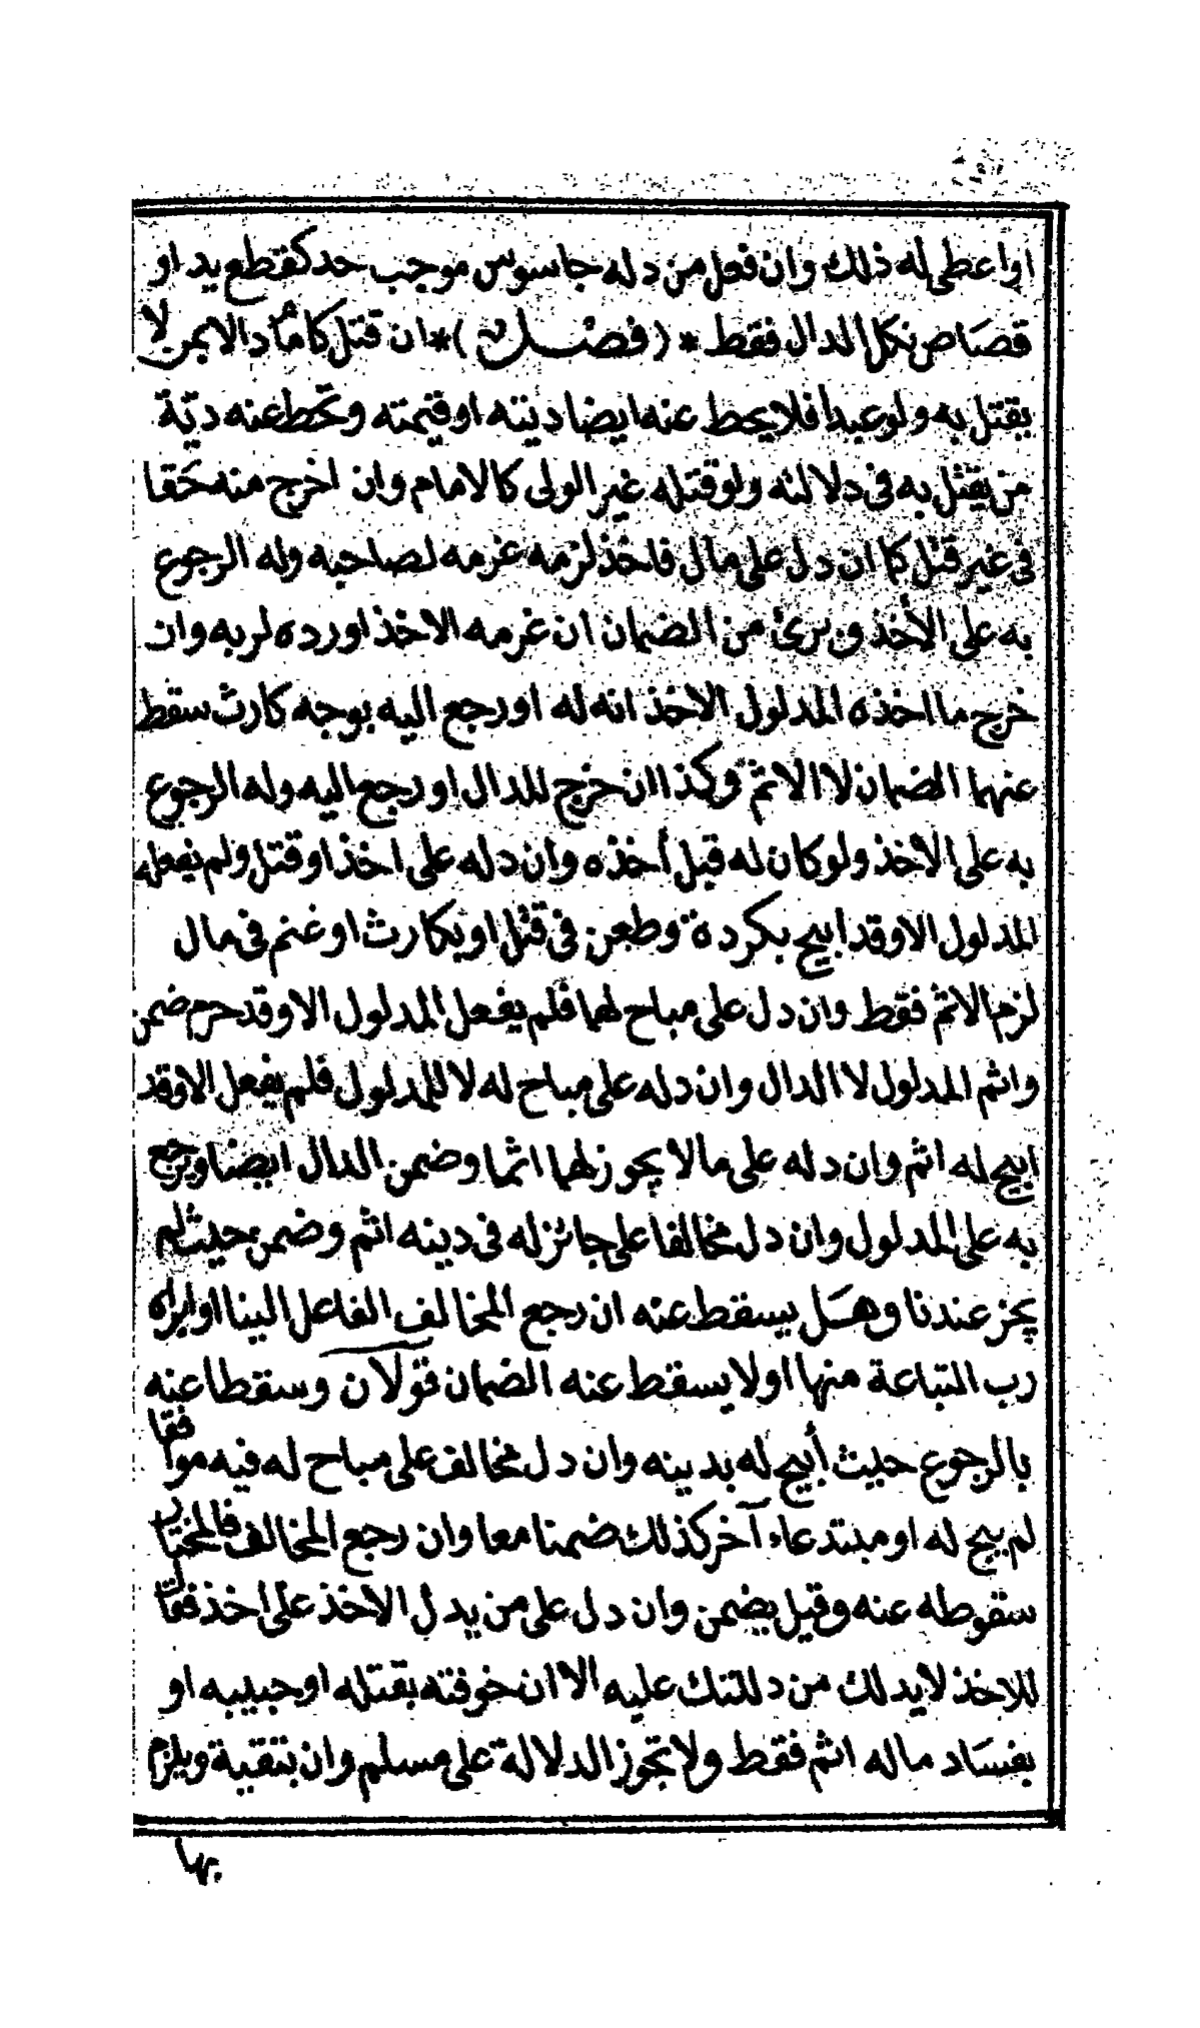 او اعطى له ذلك وان فعل من دله جاسوس موجب حد كقطع يد او
قصاص نكل الدال فقط * (فصل) * ان قتل كامًا دالا بمن لا
يقتل به ولو عبدا فلا يحط عنه ايضا ديته او قيمته وتحط عنه دية
من يقتل به فى دلالته ولو قتله غير الولى كالامام وان اخرج منه حقا
فى غير قتل كما ان دل على مال فاخذ لزمه غرمه لصاحبه وله الرجوع
به على الأخذ وبرئ من الضمان ان غرمه الاخذ او رده لربه وان
خرج ما اخذه المدلول الاخذ انه له او رجع اليه بوجه كارث سقط
عنهما الضمان لا الاثم وكذا ان خرج للدال او رجع اليه وله الرجوع
به على الأخذ ولو كان له قبل أخذه وان دله على اخذ او قتل ولم يفعله
المدلول الا وقد ابيح بكردة وطعن فى قتل او بكارث او غنم فى مال
لزم الاثم فقط وان دل على مباح لهما فلم يفعل المدلول الا وقد حرم ضمن
واثم المدلول لا الدال وان دله على مباح له لا للمدلول فلم يفعل الا وقد
ابيح له اثم وان دله على ما لا يجوز لهما اثما وضمن الدال ايضا ويرجع
به على المدلول وان دل مخالفا على جائز له فى دينه اثم وضمن حيث لم
يجز عندنا وهل يسقط عنه ان رجع المخالف الفاعل الينا او ابراه
رب التباعة منها او لا يسقط عنه الضمان قولان وسقطا عنه
بالرجوع حيث أبيح له بدينه وان دل مخالف على مباح له فيه موافقا
لم يبح له او مبتدعاء آخر كذلك ضمنا معا وان رجع المخالف فالمختار
سقوطه عنه وقيل يضمن وان دل على من يدل الاخذ على أخذ فقال
للاخذ لا يدلك من دللتك عليه الا ان خوفته بقتله او حبيبه او
بفساد ماله اثم فقط ولا تجوز الدلالة على مسلم وان بتقية ويلزم
بها